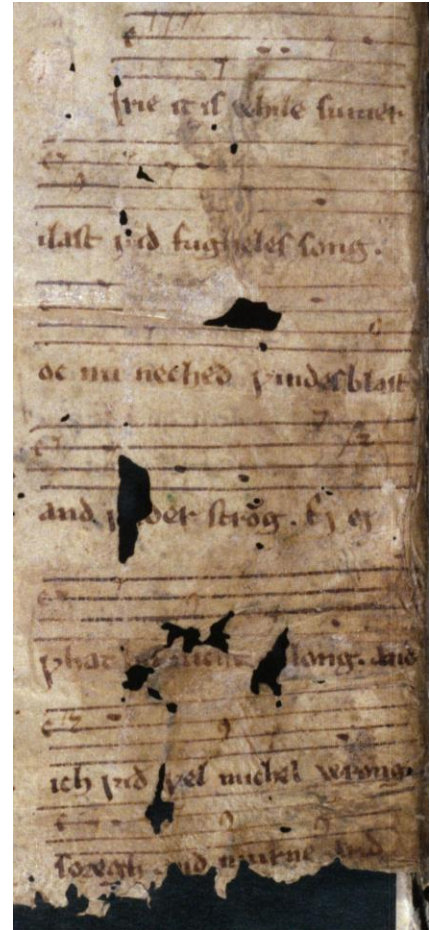 irie it iſ ƿhile ſumer
ilaſt ƿid fugheleſ ſong.
oc nu necheð ƿindeſ blaſt
and ƿeder ſtrōg. Ej ej
ƿhat nicht long. and
ich ƿid ƿel michel wrong.
ſoregh and murne and